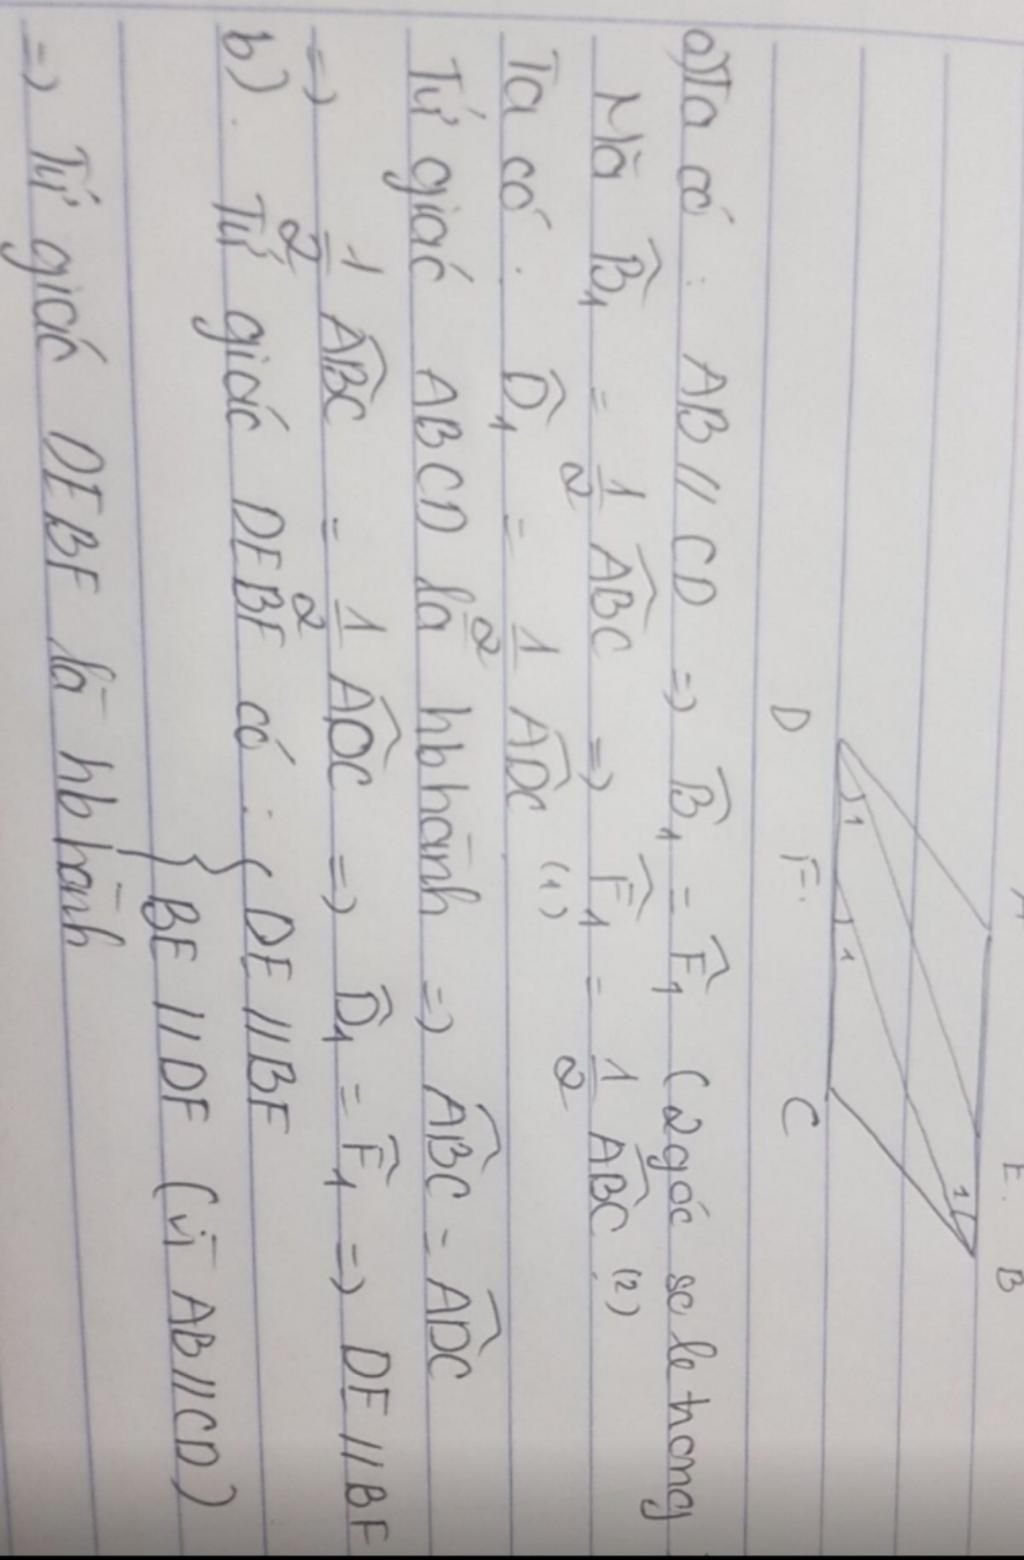 A E. B
1
1 1
D F. C
a) Ta có : AB // CD => B̂₁ = F̂₁ (2 góc so le trong
Mà B̂₁ = 1/2 \widehat{ABC} => F̂₁ = 1/2 \widehat{ABC} (2)
Ta có . D̂₁ = 1/2 \widehat{ADC} (1)
Tứ giác ABCD là hbhành => \widehat{ABC} = \widehat{ADC}
=> 1/2 \widehat{ABC} = 1/2 \widehat{ADC} => D̂₁ = F̂₁ => DE // BF
b) . Tứ giác DEBF có : { DE // BF
BE // DF (vì AB // CD)
=> Tứ giác DEBF là hbhành